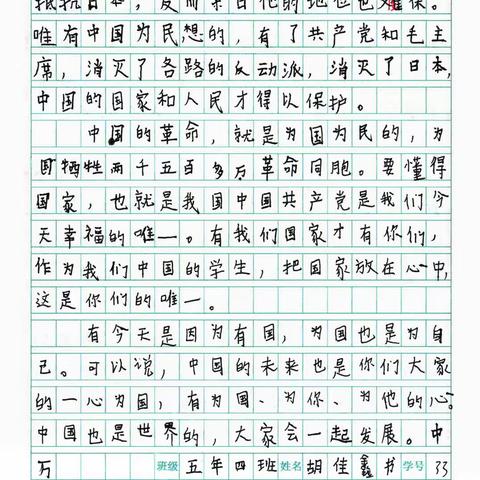 抵抗日本，反而米日他的地也也难保。
唯有中国为民想的，有了共产党和毛主
席，消灭了各路的反动派，消灭了日本，
中国的国家和人民才得以保护。
中国的革命，就是为国为民的，为
国牺牲两千五百多万革命同胞。要懂得
国家，也就是我国中国共产党是我们今
天幸福的唯一。有我们国家才有你们，
作为我们中国的学生，把国家放在心中，
这是你们的唯一。
有今天是因为有国，为国也是为自
己。可以说，中国的未来也是你们大家
的一心为国，有为国、为你、为他的心。
中国也是世界的，大家会一起发展。中
万 班级 五年四班 姓名 胡佳鑫书 学号 33